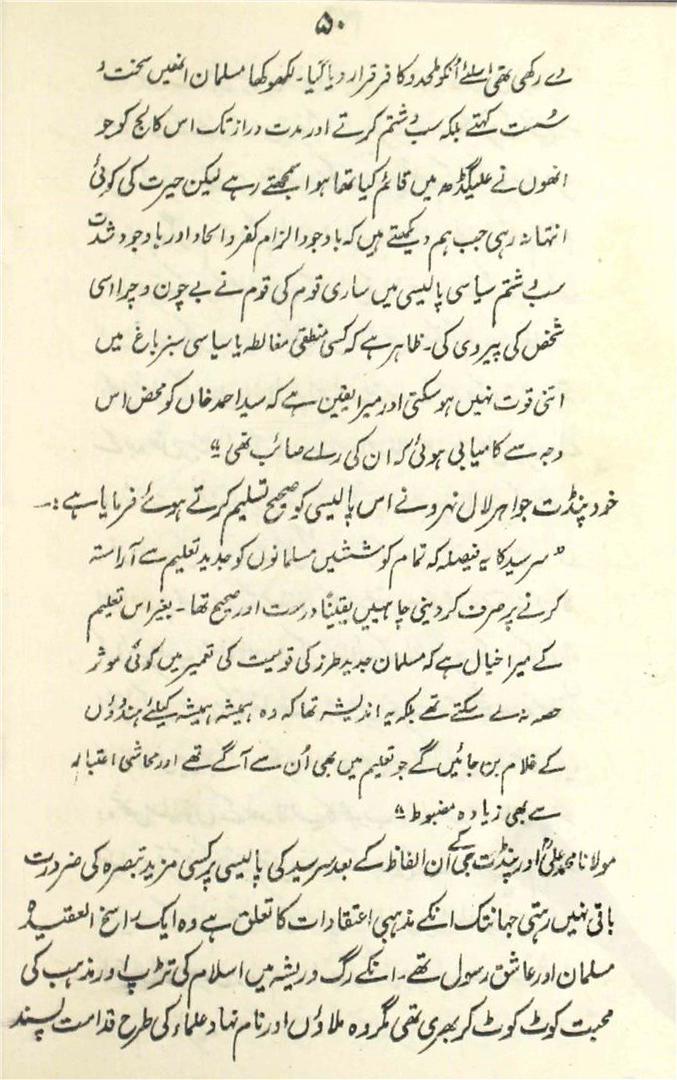 ۵۰
دے رکھی تھی اسلئے اُنکو ملحد و کافر قرار دیا گیا۔ لکھوکھا مسلمان انھیں سخت و
سُست کہتے بلکہ سبّ و شتم کرتے اور مدت دراز تک اس کالج کو جو
انھوں نے علیگڈھ میں قائم کیا تھا ہوا سمجھتے رہے لیکن حیرت کی کوئی
انتہا نہ رہی جب ہم دیکھتے ہیں کہ باوجود الزام کفر و الحاد اور باوجود شدت
سب و شتم سیاسی پالیسی میں ساری قوم کی قوم نے بے چون و چرا اسی
شخص کی پیروی کی۔ ظاہر ہے کہ کسی منطقی مغالطہ یا سیاسی سبز باغ میں
اتنی قوت نہیں ہو سکتی اور میرا یقین ہے کہ سید احمد خاں کو محض اس
وجہ سے کامیابی ہوئی کہ ان کی رائے صائب تھی"
خود پنڈت جواہر لال نہرو نے اس پالیسی کو صحیح تسلیم کرتے ہوئے فرمایا ہے:۔
"سرسید کا یہ فیصلہ کہ تمام کوششیں مسلمانوں کو جدید تعلیم سے آراستہ
کرنے پر صرف کر دینی چاہییں یقینًا درست اور صحیح تھا۔ بغیر اس تعلیم
کے میرا خیال ہے کہ مسلمان جدید طرز کی قومیت کی تعمیر میں کوئی موثر
حصہ نہ لے سکتے تھے بلکہ یہ اندیشہ تھا کہ وہ ہمیشہ ہمیشہ کیلئے ہندوؤں
کے غلام بن جائیں گے جو تعلیم میں بھی اُن سے آگے تھے اور معاشی اعتبار
سے بھی زیادہ مضبوط"
مولانا محمد علیؒ اور پنڈت جی کے اُن الفاظ کے بعد سرسید کی پالیسی پر کسی مزید تبصرہ کی ضرورت
باقی نہیں رہتی جہانتک انکے مذہبی اعتقادات کا تعلق ہے وہ ایک راسخ العقیدہ
مسلمان اور عاشق رسول تھے۔ انکے رگ و ریشہ میں اسلام کی تڑپ اور مذہب کی
محبت کوٹ کوٹ کر بھری تھی مگر وہ ملاؤں اور نام نہاد علماء کی طرح قدامت پسند